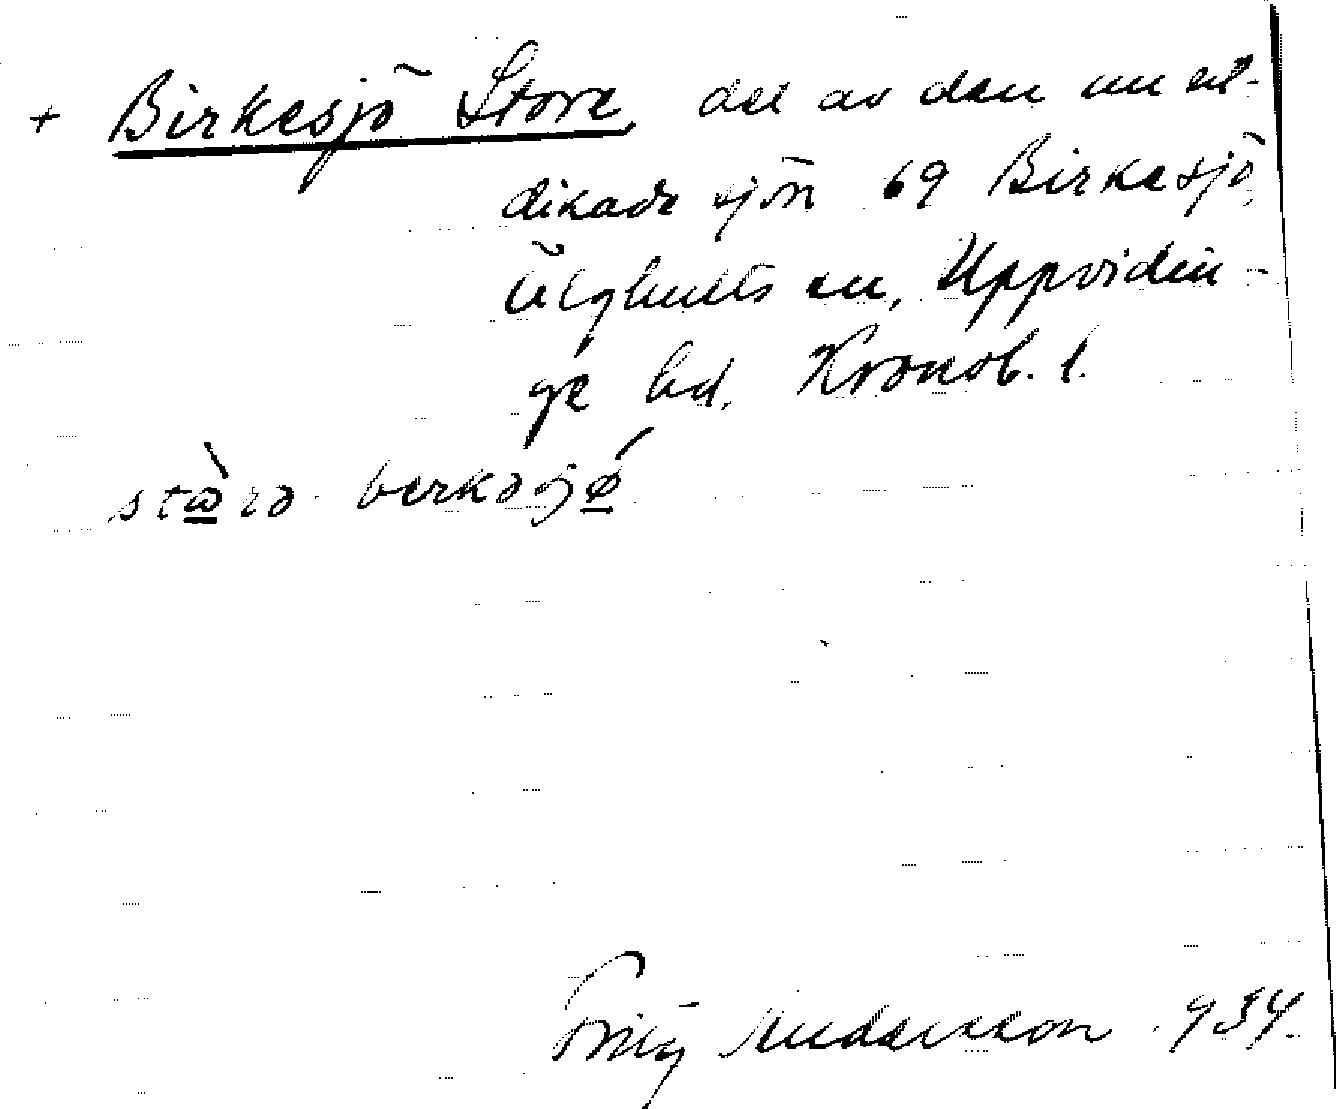 + Birkesjö Store, del av den nu ut-
dikade sjön 69 Birkesjö,
Älghults sn, Uppvidin-
ge hd, Kronob. l.
stὼrə berkəsjǿ
Andersson 934.